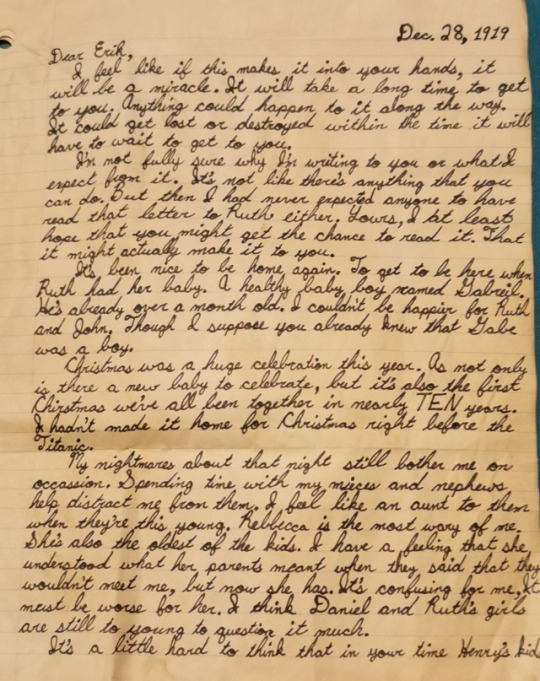 Dec. 28, 1919
Dear Erik,
I feel like if this makes it into your hands, it
will be a miracle. It will take a long time to get
to you. Anything could happen to it along the way.
It could get lost or destroyed within the time it will
have to wait to get to you.
I'm not fully sure why I'm writing to you or what I
expect from it. It's not like there's anything that you
can do. But then I had never expected anyone to have
read that letter to Ruth either. Yours, I at least
hope that you might get the chance to read it. That
it might actually make it to you.
It's been nice to be home again. To get to be here when
Ruth had her baby. A healthy baby boy named Gabreil.
He's already over a month old. I couldn't be happier for Ruth
and John. Though I suppose you already knew that Gabe
was a boy.
Christmas was a huge celebration this year. As not only
is there a new baby to celebrate, but it's also the first
Chirstmas we've all been together in nearly TEN years.
I hadn't made it home for Christmas right before the
Titanic.
My nightmares about that night still bother me on
occassion. Spending time with my nieces and nephews
help distract me from them. I feel like an aunt to them
when they're this young. Rebbecca is the most wary of me.
She's also the oldest of the kids. I have a feeling that she
understood what her parents meant when they said that they
wouldn't meet me, but now she has. It's confusing for me, It
must be worse for her. I think Daniel and Ruth's girls
are still to young to question it much.
It's a little hard to think that in your time Henry's kids